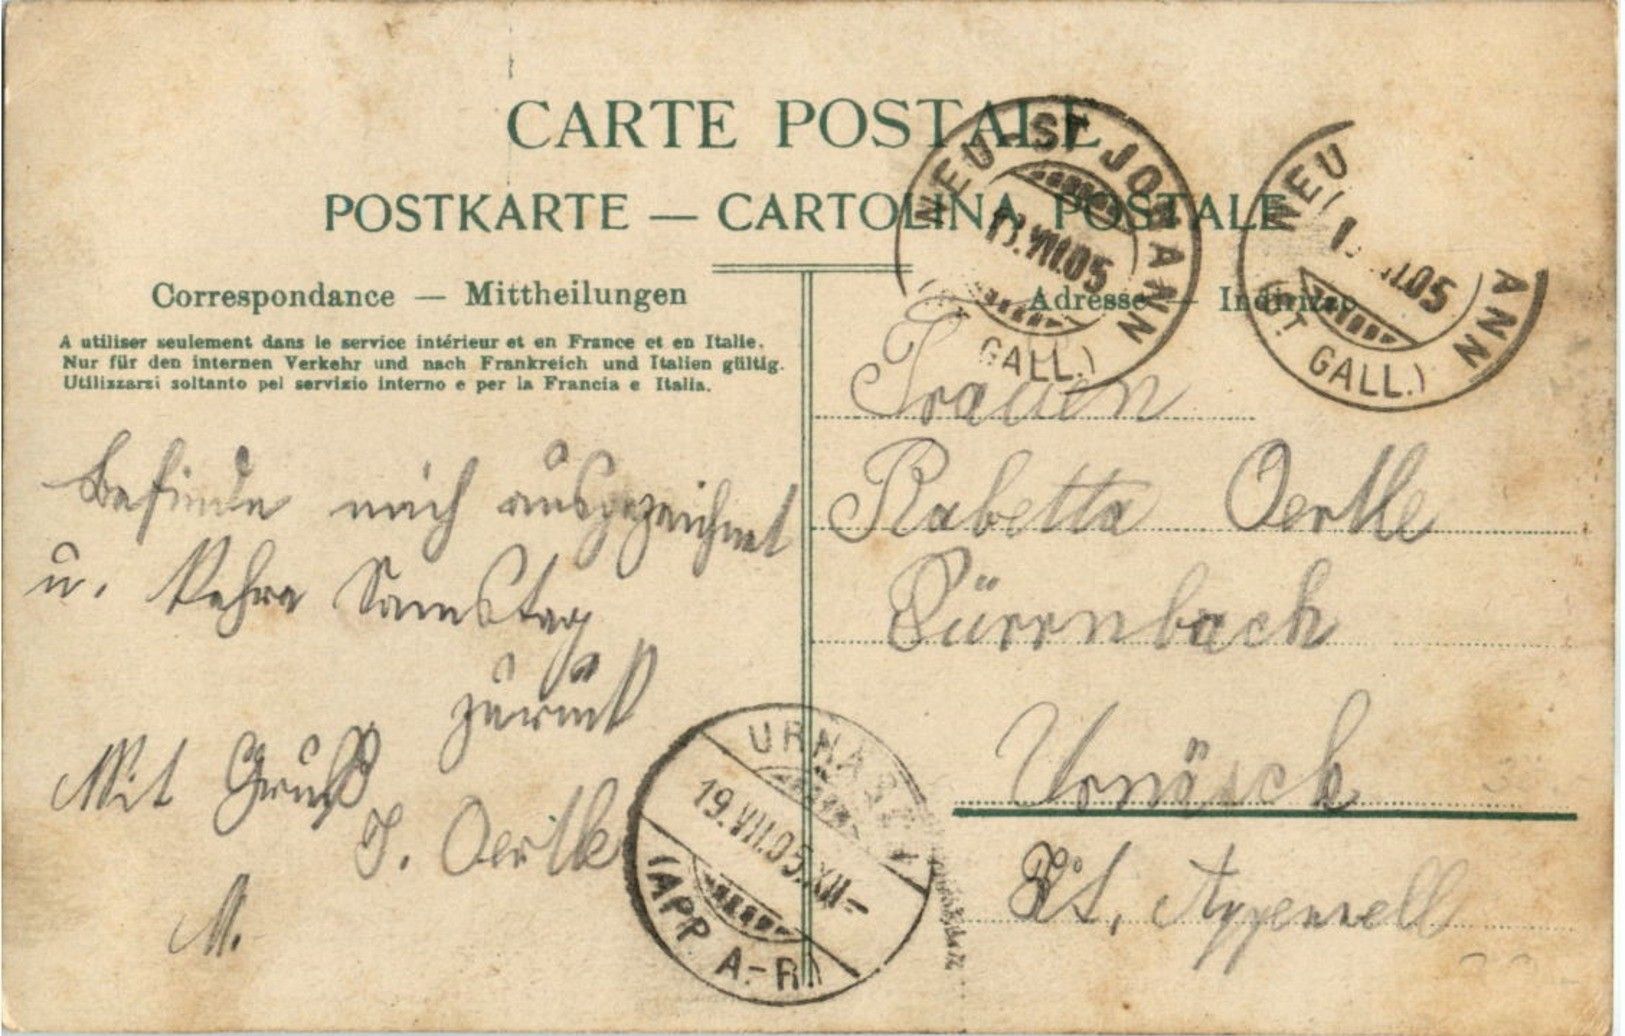 CARTE POSTALE
POSTKARTE — CARTOLINA POSTALE
Correspondance — Mittheilungen
A utiliser seulement dans le service intérieur et en France et en Italie.
Nur für den internen Verkehr und nach Frankreich und Italien gültig.
Utilizzarsi soltanto pel servizio interno e per la Francia e Italia.
Adresse — Indirizzo
NEU-ST JOHANN
VII.05
GALL.)
NEU ANN
05
(ST GALL.)
Befinde mich ausgezeichnet
u. kehre Samstag
zurück
Mit Gruß
J. Oertle
M.
Frauen
Babetta Oertle
Dürrnbach
Urnäsch
Kt. Appenzell
URNÄSCH
19.VII.05.XII-
(APP. A.-R.)